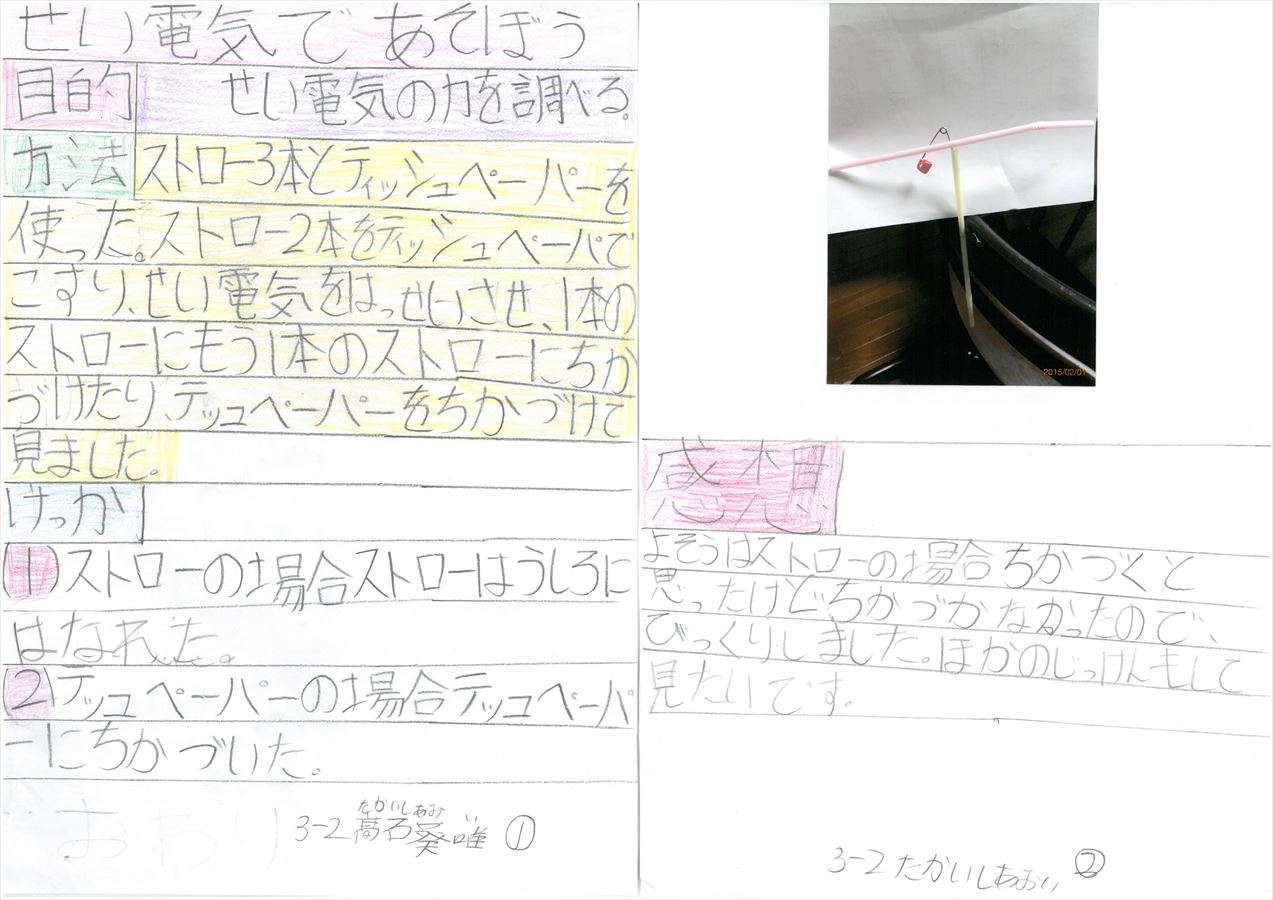 せい電気であそぼう
目的 せい電気の力を調べる。
方法 ストロー3本とティッシュペーパーを
使った。ストロー2本をティッシュペーパで
こすり、せい電気をはっせいさせ、1本の
ストローにもう1本のストローにちか
づけたり、テッュペーパーをちかづけて
見ました。
けっか
(1)ストローの場合ストローはうしろに
はなれた。
(2)テッュペーパーの場合テッュペーパ
ーにちかづいた。
おわり
たかいしあおい
3-2 髙石葵唯 ①
2015/02/01
感想
よそうはストローの場合ちかづくと
思ったけどちかづかなかったので、
びっくりしました。ほかのじっけんもして
見たいです。
3-2 たかいしあおい ②